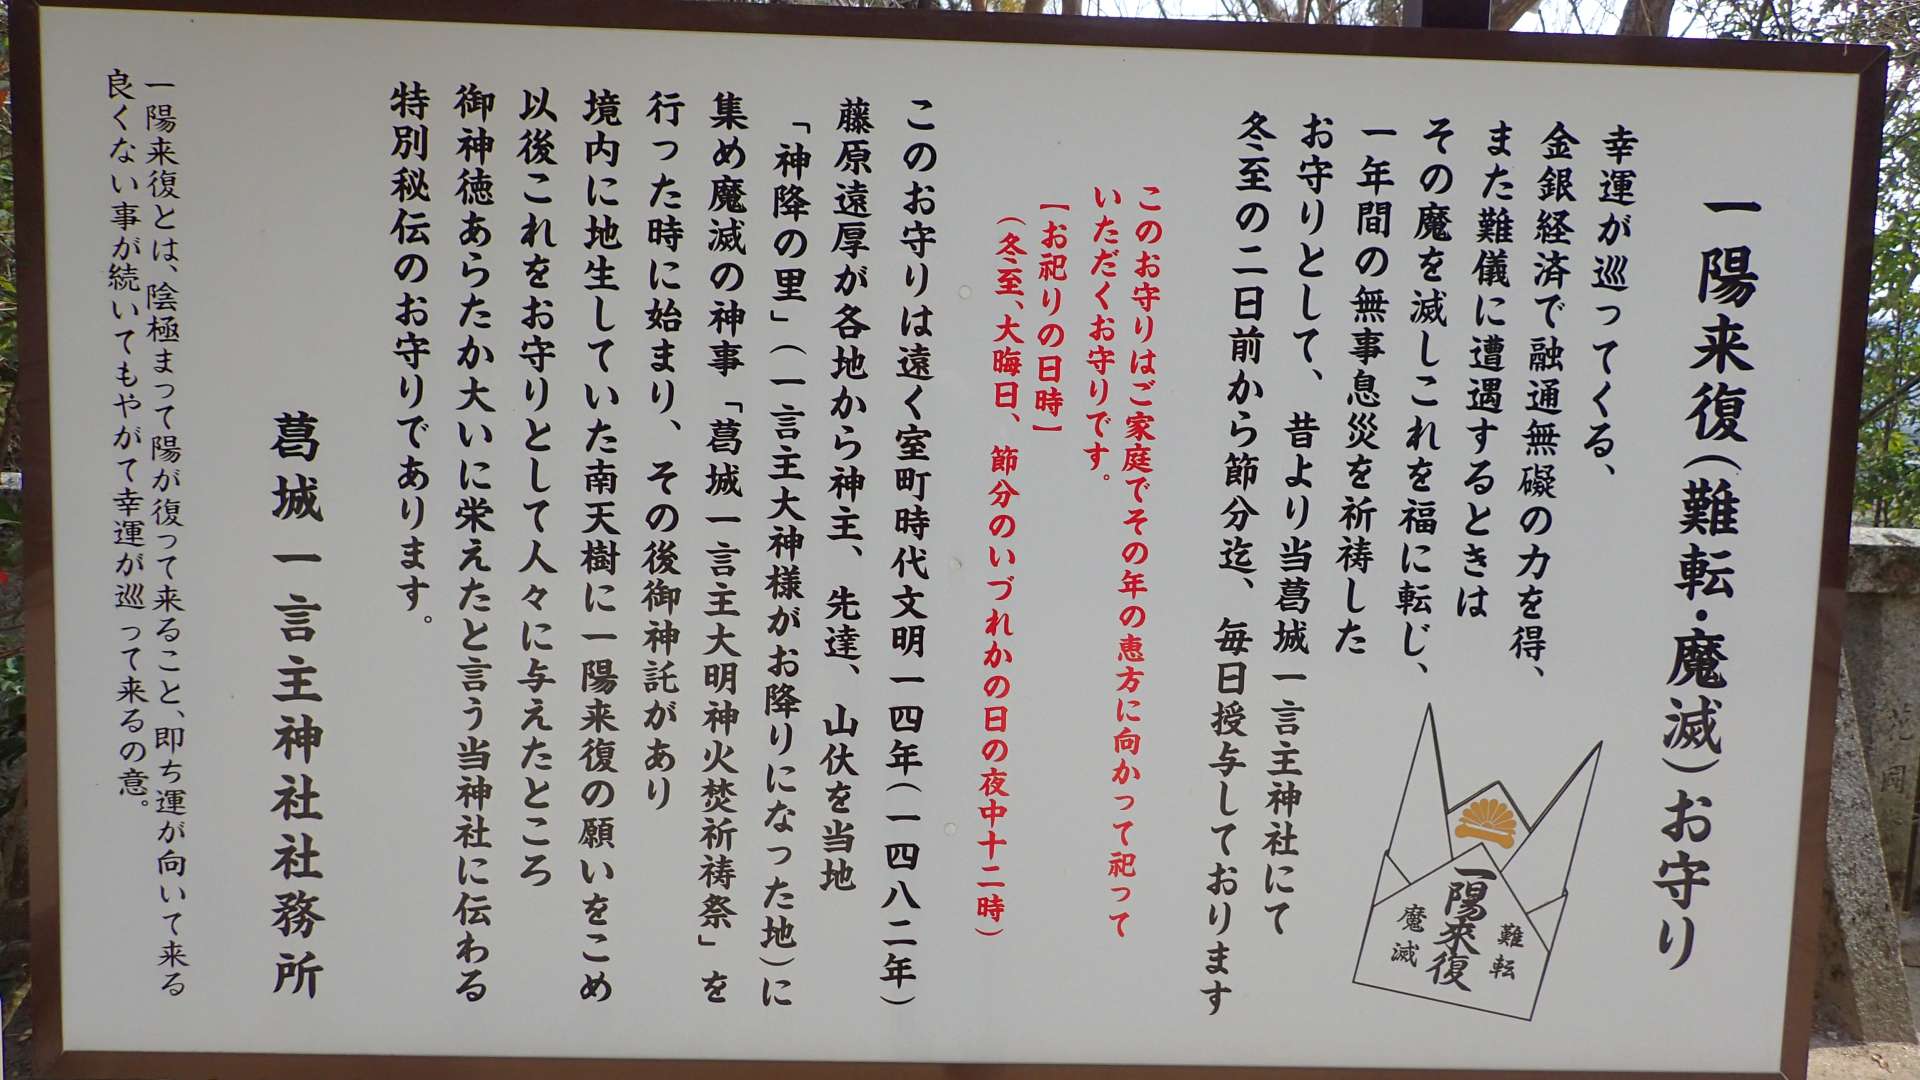 一陽来復（難転・魔滅）お守り
幸運が巡ってくる、
金銀経済で融通無礙の力を得、
また難儀に遭遇するときは
その魔を滅しこれを福に転じ、
一年間の無事息災を祈祷した
お守りとして、昔より当葛城一言主神社にて
冬至の二日前から節分迄、毎日授与しております
一陽来復
難転
魔滅
このお守りはご家庭でその年の恵方に向かって祀って
いただくお守りです。
【お祀りの日時】
（冬至、大晦日、節分のいづれかの日の夜中十二時）
このお守りは遠く室町時代文明一四年（一四八二年）
藤原遠厚が各地から神主、先達、山伏を当地
「神降の里」（一言主大神様がお降りになった地）に
集め魔滅の神事「葛城一言主大明神火焚祈祷祭」を
行った時に始まり、その後御神託があり
境内に地生していた南天樹に一陽来復の願いをこめ
以後これをお守りとして人々に与えたところ
御神徳あらたか大いに栄えたと言う当神社に伝わる
特別秘伝のお守りであります。
葛城一言主神社社務所
一陽来復とは、陰極まって陽が復って来ること、即ち運が向いて来る
良くない事が続いてもやがて幸運が巡って来るの意。